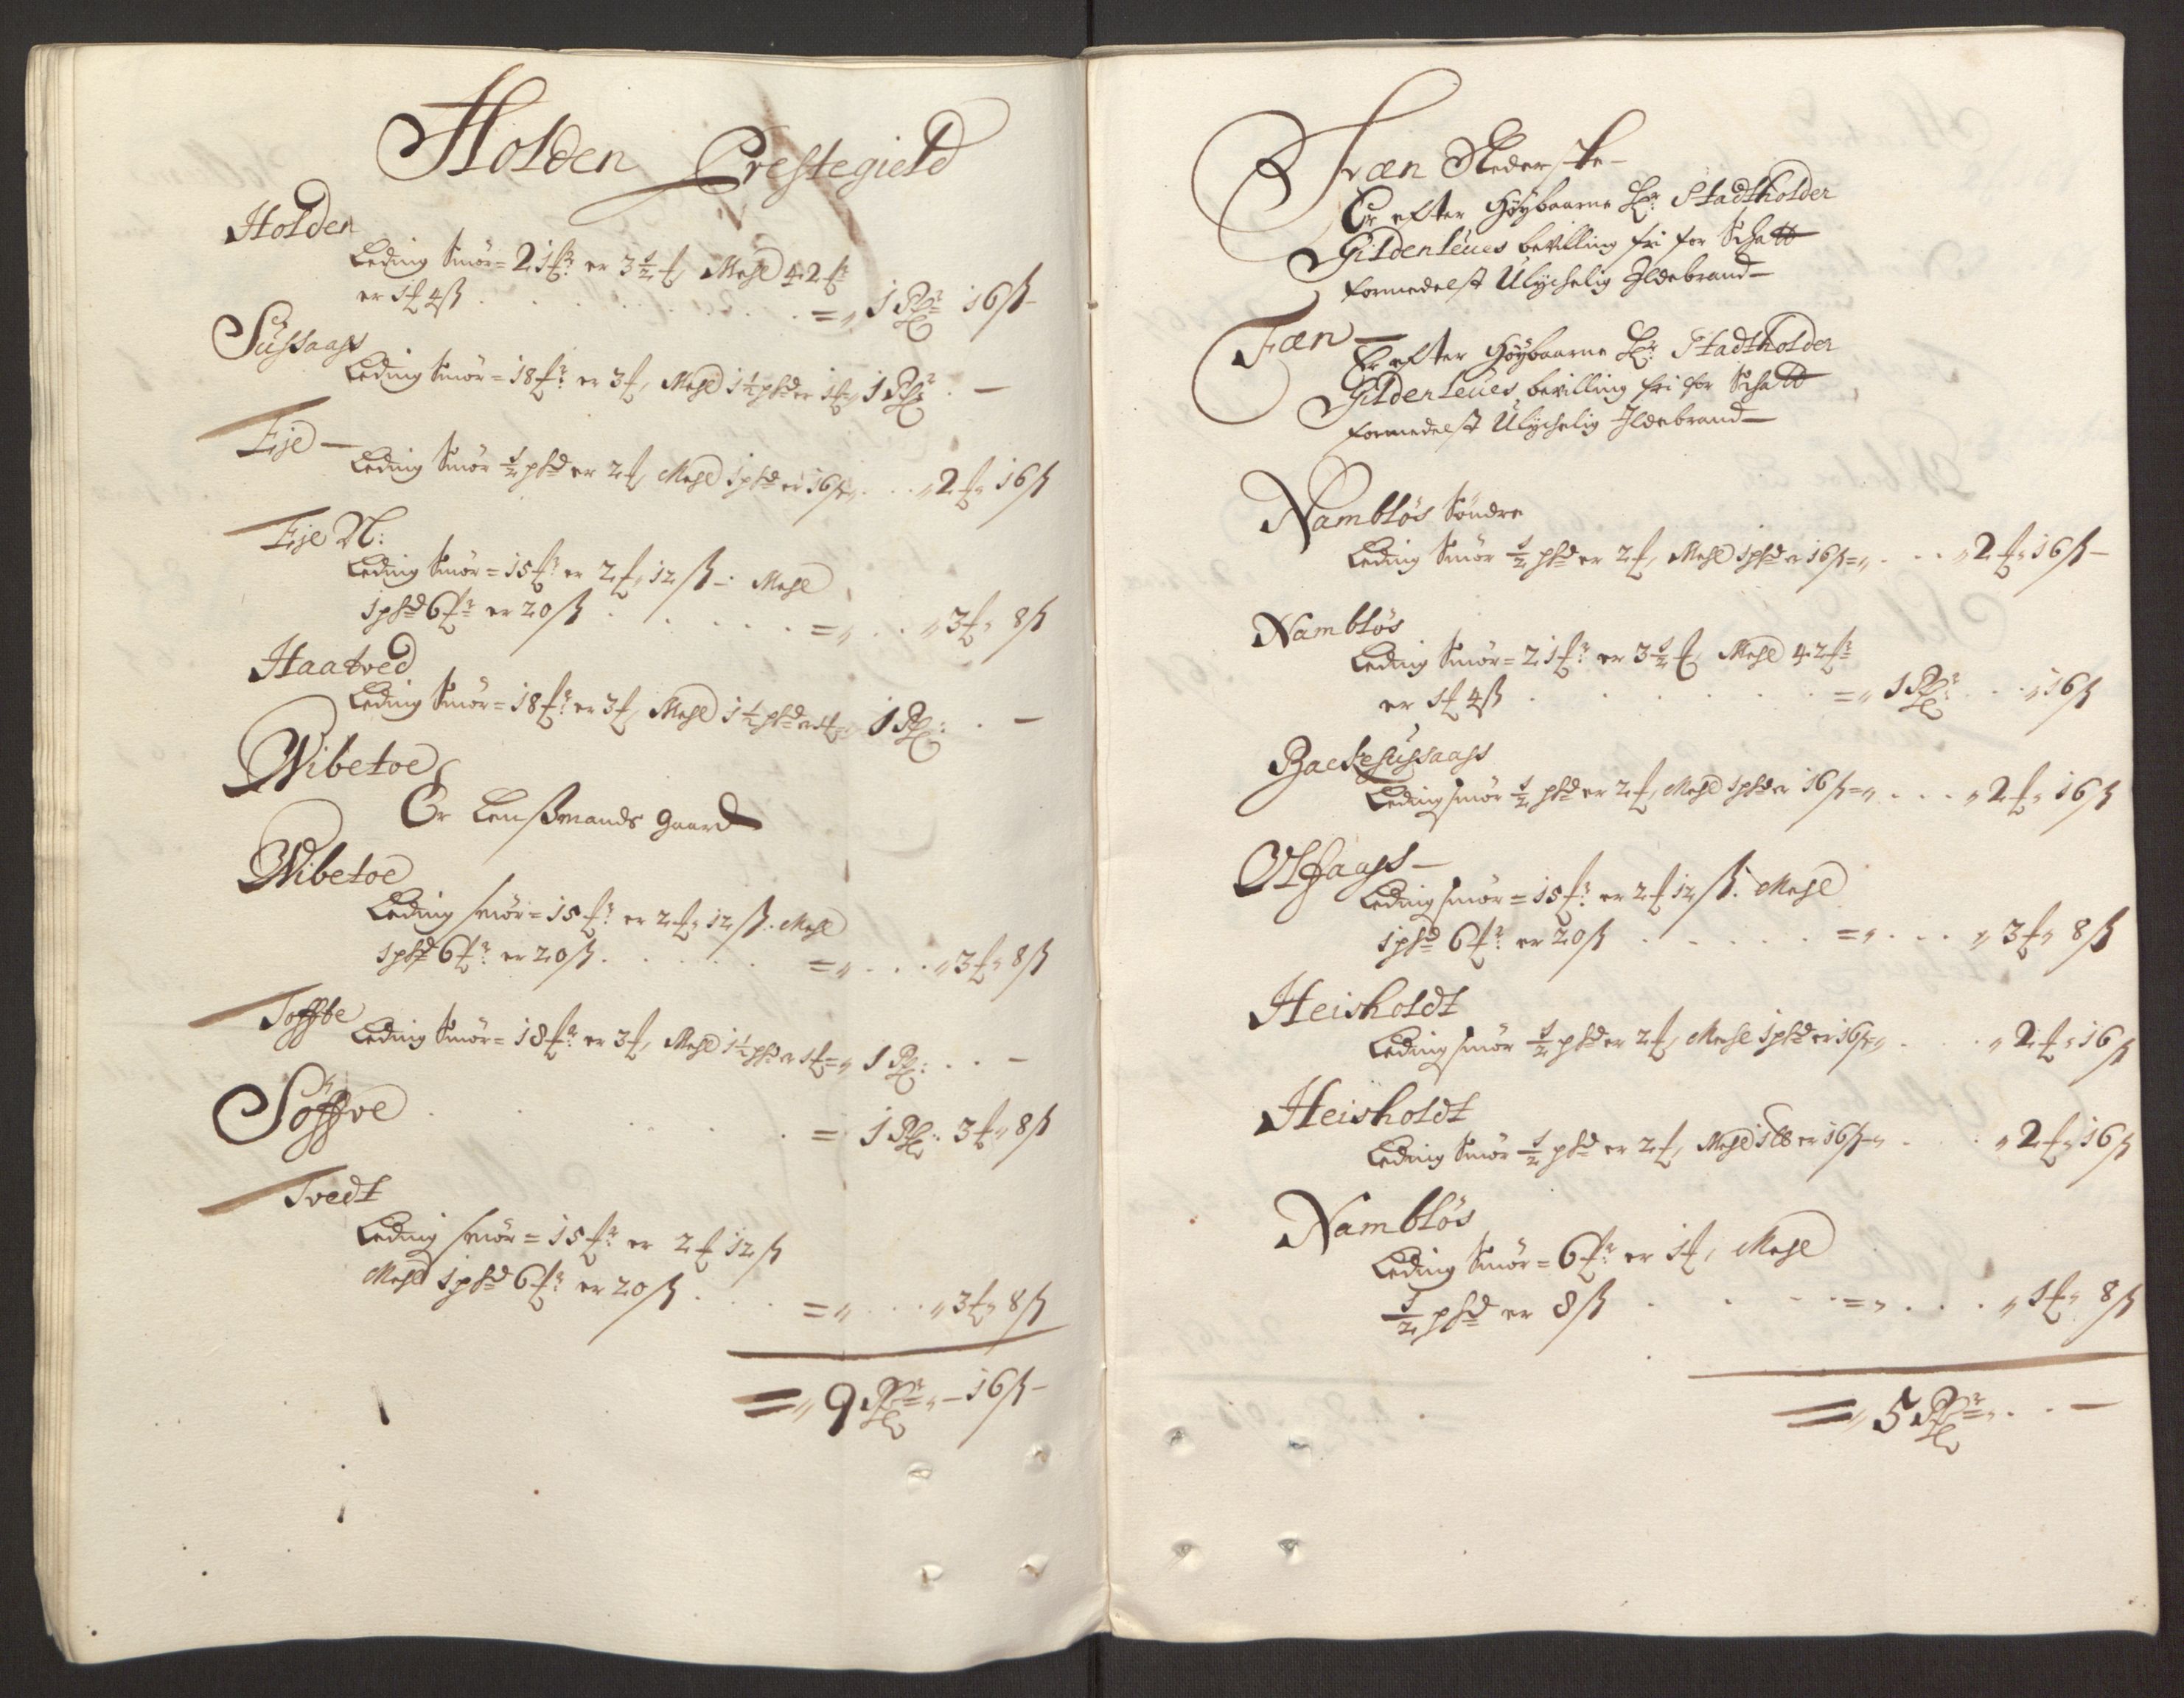 Holden Prestegield
Holden
Leding Smör = 21 ℔r er 3½ ℔, Mehl 42 ℔r
er 1 ℔ 4 ß . . . . . = „ 1 Rdr 16 ß –
Sussaass
Leding Smör = 18 ℔r er 3 ℔, Mehl 1½ phd er 1 ℔ „ 1 Rdr . –
Eje –
Leding Smör ½ phd er 2 ℔, Mehl 1 phd er 16 ß „ . . „ 2 ℔ „ 16 ß
Eje N:
Leding Smör = 15 ℔r er 2 ℔ „ 12 ß – . Mehl
1 phd 6 ℔r er 20 ß . . . . . = „ . . „ 3 ℔ „ 8 ß
Haatved
Leding Smör = 18 ℔r er 3 ℔, Mehl 1½ phd er 1 ℔ = „ 1 Rd: . –
Wibetoe
Er Lenßmands gaard
Wibetoe
Leding smör = 15 ℔r er 2 ℔ „ 12 ß . Mehl
1 phd 6 ℔r er 20 ß . . . . = „ . . . „ 3 ℔ „ 8 ß
Toffte
Leding Smör = 18 ℔r er 3 ℔, Mehl 1½ phd er 1 ℔ = „ 1 Rd: . . –
Söffve . . . . . . = 1 Rd: 3 ℔ „ 8 ß
Tvedt
Leding smör = 15 ℔r er 2 ℔ 12 ß
Mehl 1 phd 6 ℔r er 20 ß . . . = „ . . . „ 3 ℔ „ 8 ß
= „ 9 Rdr „ – 16 ß –
Fræn Neder
Er efter Höybaarne Hr: Stadtholder
Gildenleües bevilling fri for Schatt
formedelst Ulychelig Ildebrand –
Fæn –
Er efter Höybaarne Hr: Stadtholder
Gildenleües bevilling fri for Schatt
formedelst Ulychelig Ildebrand –
Nambløs Söndre
Leding Smör ½ phd er 2 ℔, Mehl 1 phd er 16 ß = „ . . . „ 2 ℔ „ 16 ß –
Nambløs
Leding Smör = 21 ℔r er 3½ ℔, Mehl 42 ℔r
er 1 ℔ 4 ß . . . . . . = „ 1 Rdr . . . „ 16 ß
Backesussaass
Leding smör ½ phd er 2 ℔, Mehl 1 phd er 16 ß = „ . . . „ 2 ℔ „ 16 ß
Olsaass –
Leding smör = 15 ℔r er 2 ℔ 12 ß . Mehl
1 phd 6 ℔r er 20 ß . . . . . = „ . . . „ 3 ℔ „ 8 ß
Heisholdt
Leding smör ½ phd er 2 ℔, Mehl 1 phd er 16 ß = „ . . . „ 2 ℔ „ 16 ß
Heisholdt
Leding Smör ½ phd er 2 ℔, Mehl 1 ℔ er 16 ß = „ . . . „ 2 ℔ „ 16 ß
Nambløs
Leding Smör = 6 ℔r er 1 ℔, Mehl
½ phd er 8 ß . . . . = „ . . . „ 1 ℔ „ 8 ß
= „ 5 Rdr „ . . –